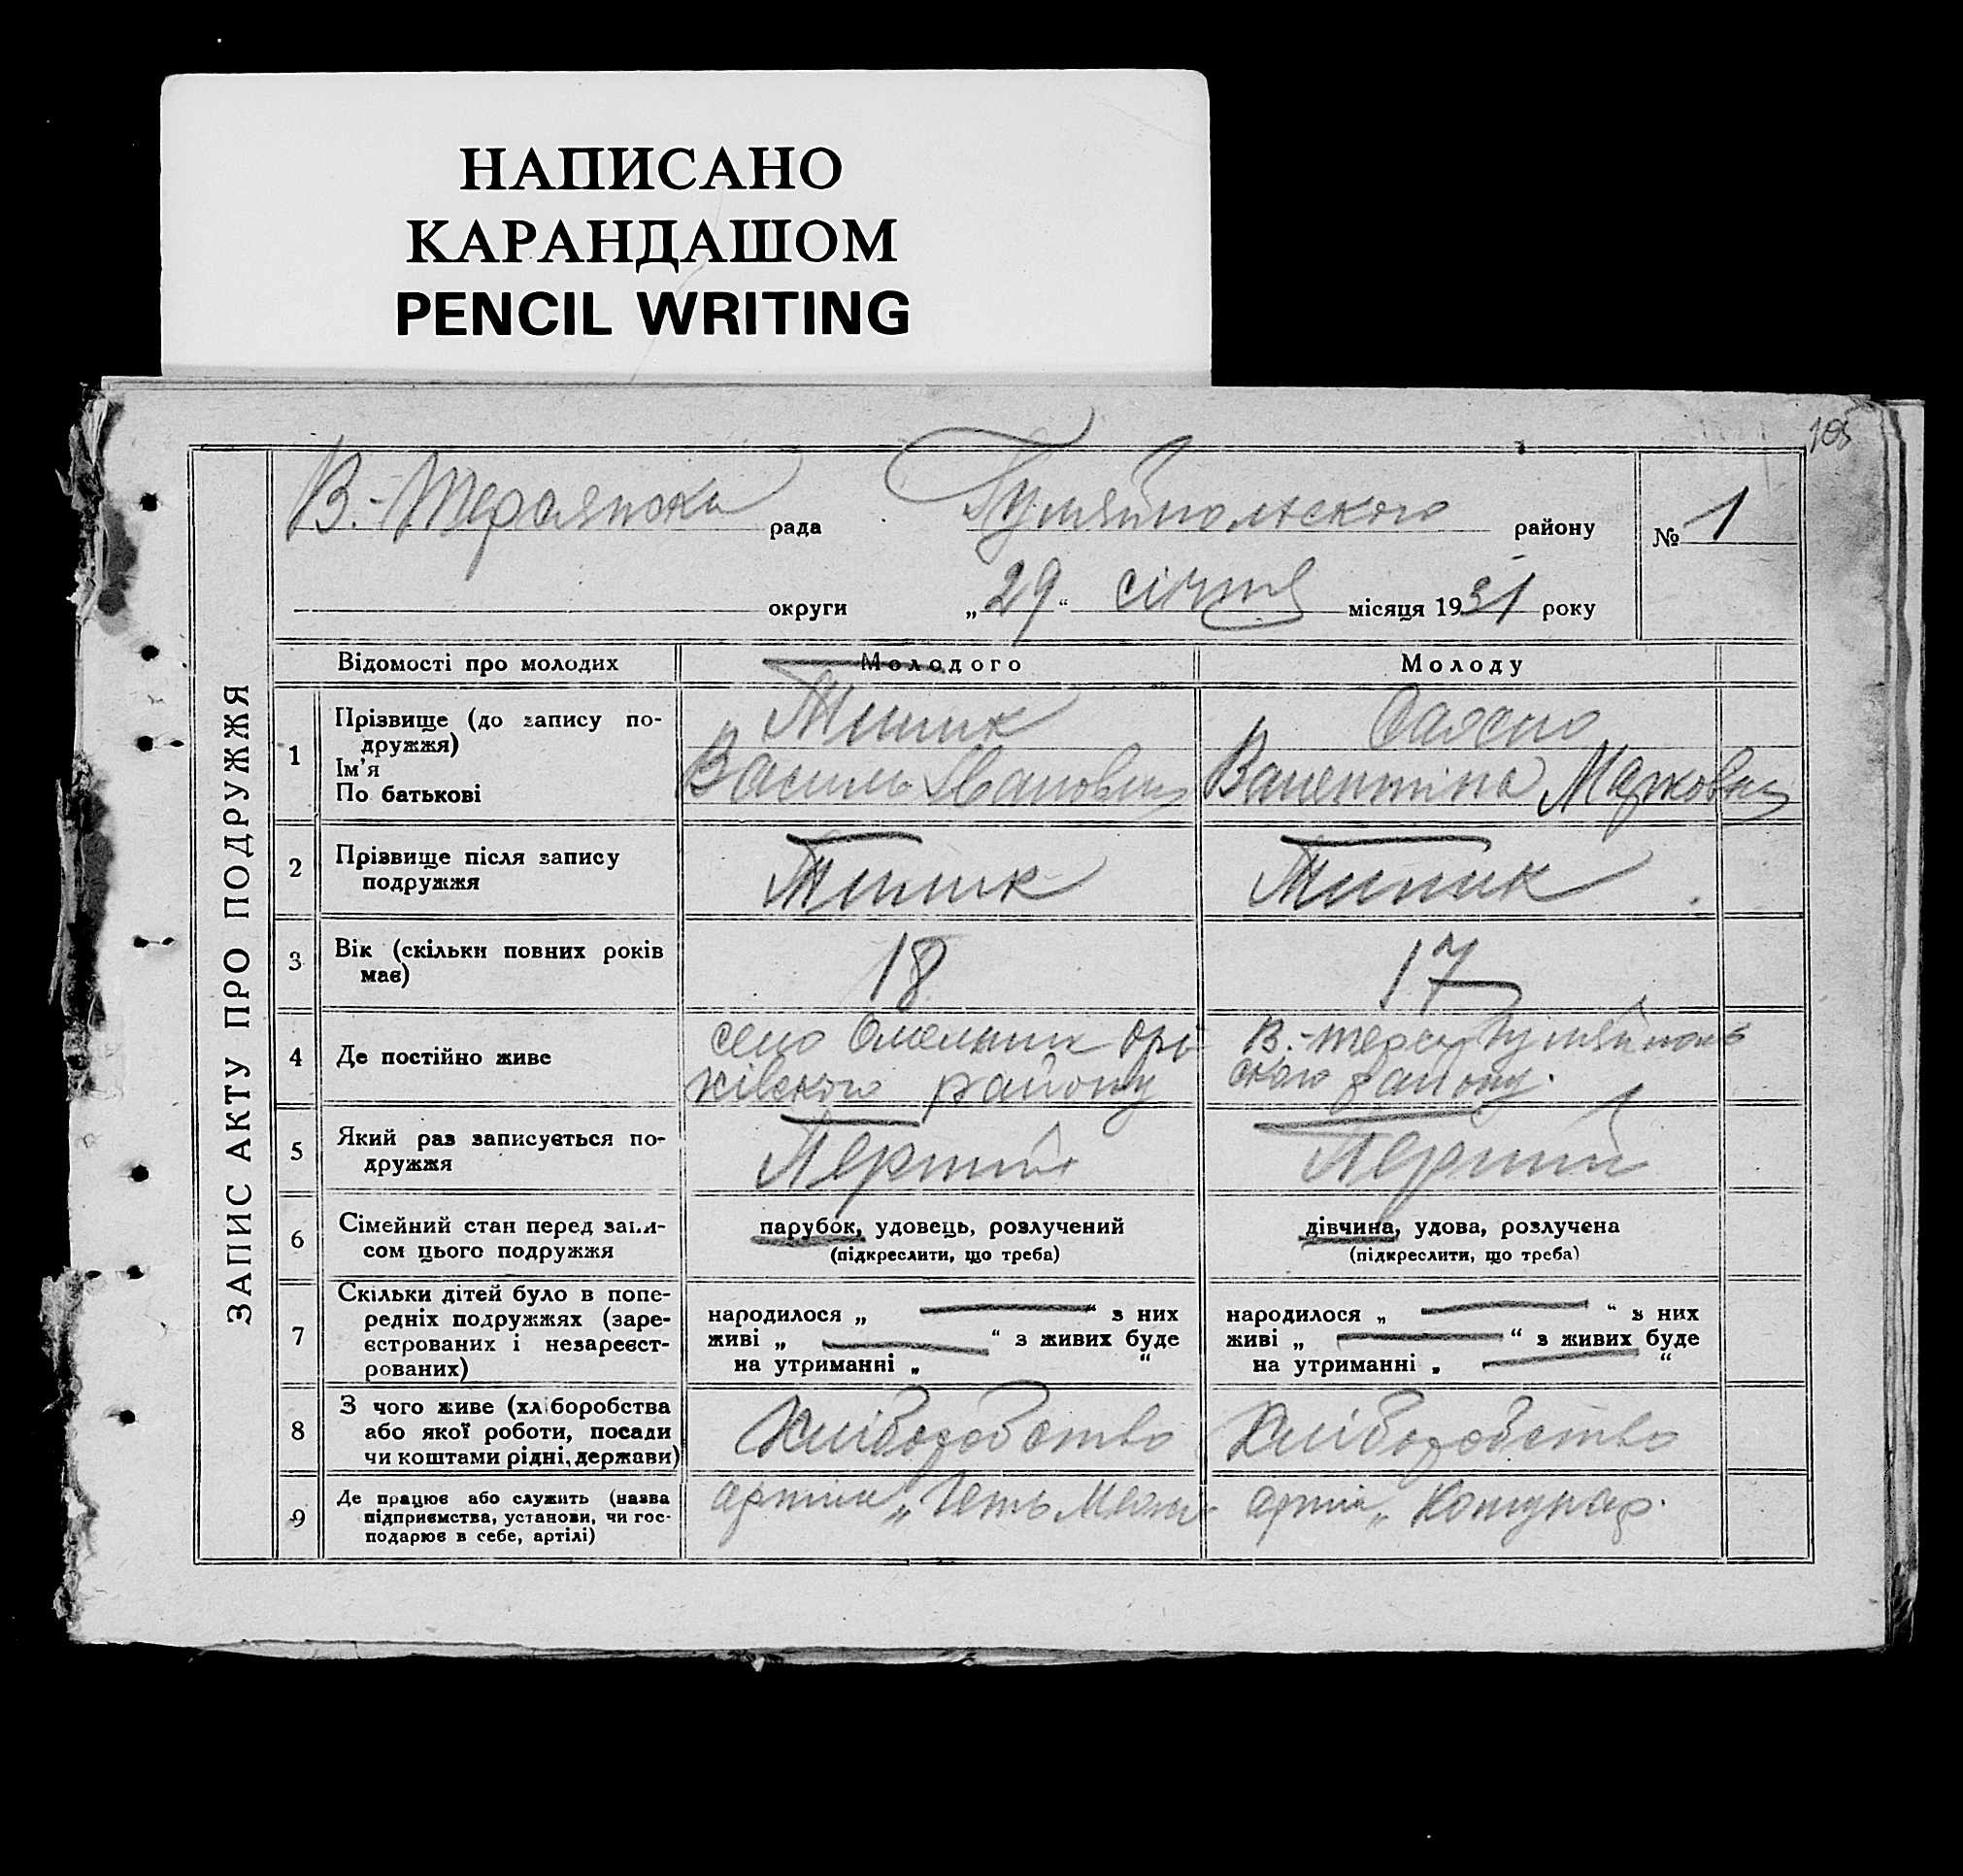 НАПИСАНО
КАРАНДАШОМ
PENCIL WRITING
105
ЗАПИС АКТУ ПРО ПОДРУЖЖЯ
В.-Терсянска рада Гуляйпольского району № 1
округи „29“ січня місяця 1931 року
Відомості про молодих Молодого Молоду
1 Прізвище (до запису по-
дружжя)
Ім'я
По батькові
Типик
Василь Іванович
Валентіна Марковна
2 Прізвище після запису
подружжя
Типик Типик
3 Вік (скільки повних років
має)
18 17
4 Де постійно живе
село Омельник Орі-
хівского району
В.-Терса Гуляйполь
ского району.
5 Який раз записується по-
дружжя
Перший Перший
6 Сімейний стан перед запи-
сом цього подружжя
парубок, удовець, розлучений
(підкреслити, що треба)
дівчина, удова, розлучена
(підкреслити, що треба)
7 Скільки дітей було в попе-
редніх подружжях (заре-
єстрованих і незареєст-
рованих)
народилося „ “ з них
живі „ “ з живих буде
на утриманні „ “
народилося „ “ з них
живі „ “ з живих буде
на утриманні „ “
8 З чого живе (хліборобства
або якої роботи, посади
чи коштами рідні, держави)
Хліборобство Хліборобство
9 Де працює або служить (назва
підприємства, установи, чи гос-
подарює в себе, артілі)
артіль „Геть Межі
артіл „Комунар.